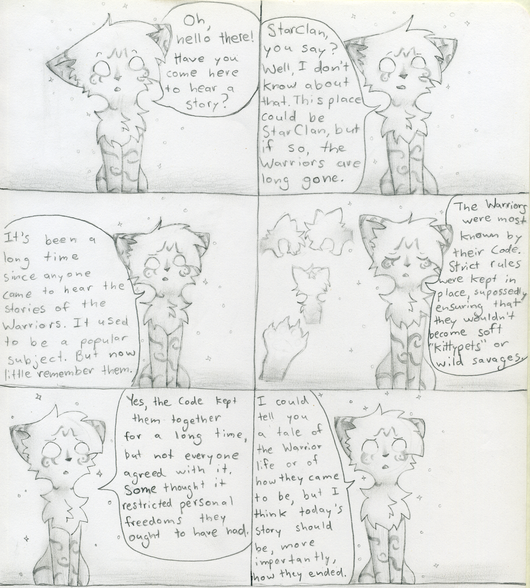 Oh,
hello there!
Have you
come here
to hear a
story?
StarClan,
you say?
Well, I don't
know about
that. This place
could be
StarClan, but
if so, the
Warriors are
long gone.
It's been a
long time
since anyone
came to hear the
stories of the
Warriors. It used
to be a popular
subject. But now
little remember them.
The Warriors
were most
known by
their Code.
Strict rules
were kept in
place, supossedly
ensuring that
they wouldn't
become soft
"kittypets" or
wild savages.
Yes, the Code kept
them together
for a long time,
but not everyone
agreed with it.
Some thought it
restricted personal
freedoms they
ought to have had.
I could
tell you
a tale of
the Warrior
life or of
how they came
to be, but I
think today's
story should
be, more
importantly,
how they ended.